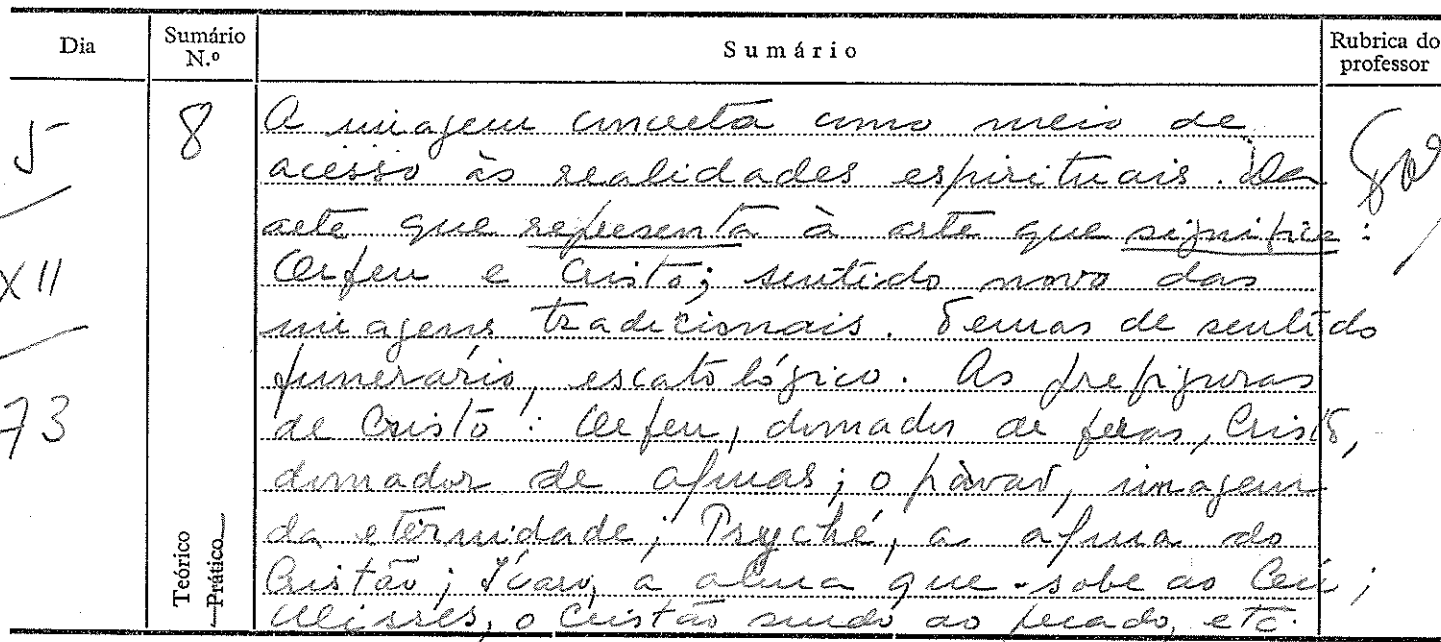 Dia Sumário N.º Sumário Rubrica do professor
5 8 A imagem concreta como meio de
acesso às realidades espirituais. Da
arte que representa à arte que significa:
XII Orfeu e Cristo; sentido novo das
imagens tradicionais. Temas de sentido
funerário, escatológico. As prefiguras
73 de Cristo: Orfeu, domador de feras, Cristo,
domador de almas; o pavão, imagem
da eternidade; Psyché, a alma do
Cristão; Ícaro, a alma que sobe ao Céu;
Ulisses, o Cristão surdo ao pecado, etc.
Teórico
Prático